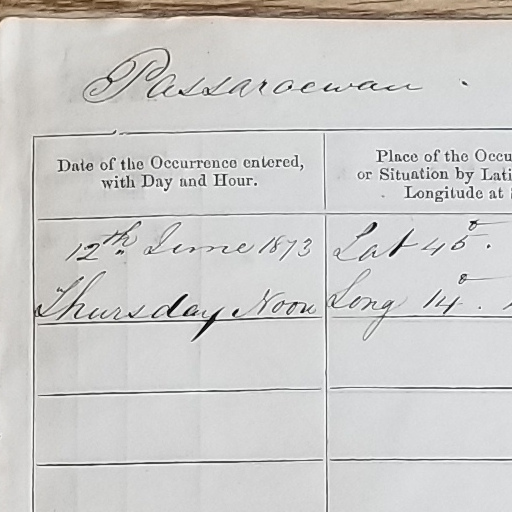 Passaroewan .
Date of the Occurrence entered,
with Day and Hour.
Place of the Occu
or Situation by Lati
Longitude at
12th June 1873
Lat 45°.
Thursday Noon
Long 14°.